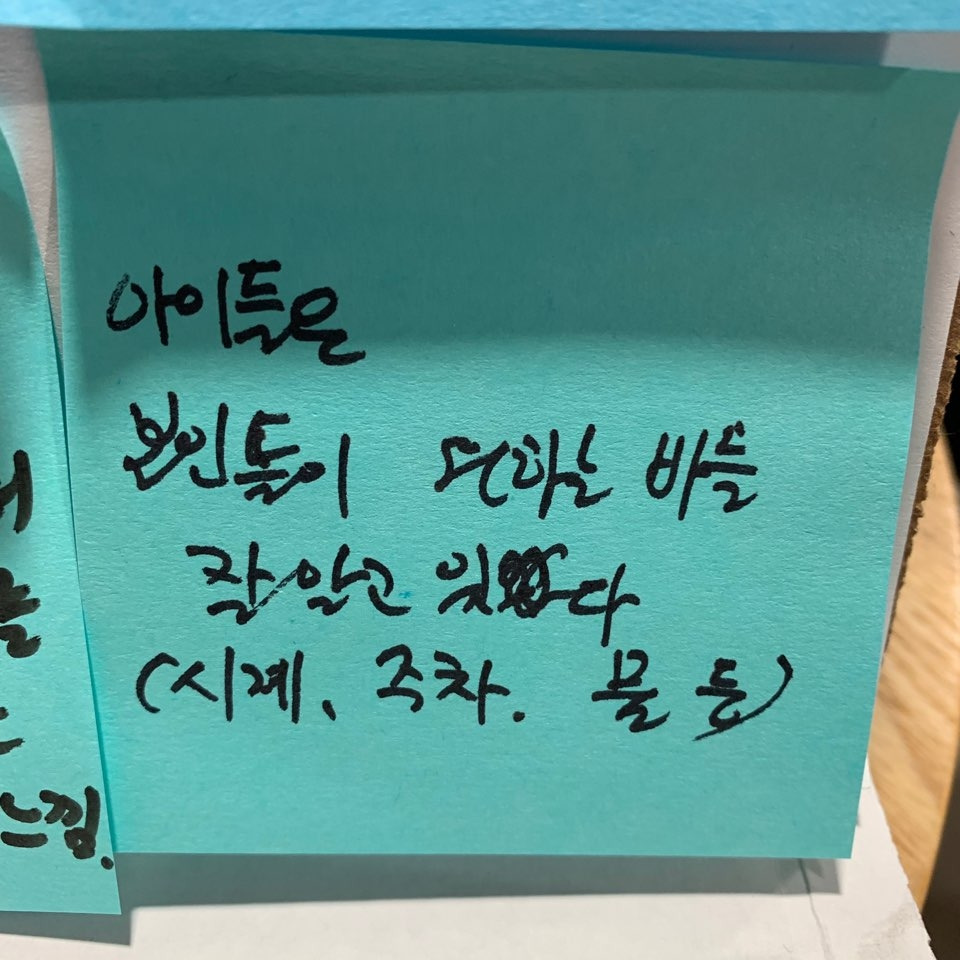 아이들은
본인들이 원하는 바를
잘 알고 있다
(시계, 주차, 물 등)
느낌.